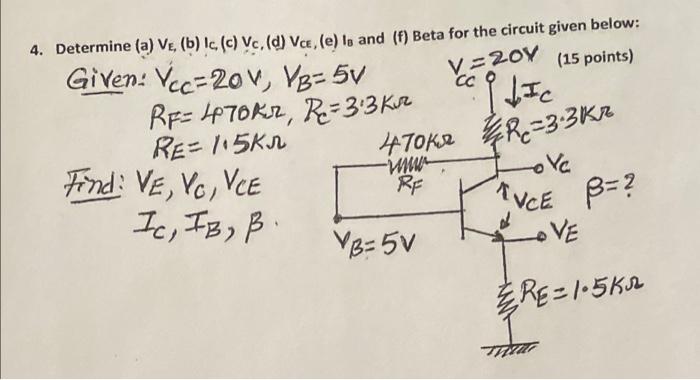 4. Determine (a) VE, (b) IC, (c) VC, (d) VCE, (e) IB and (f) Beta for the circuit given below:
(15 points)
Given: VCC=20V, VB=5V
RF=470KΩ, RC=3.3KΩ
RE=1.5KΩ
Find: VE, VC, VCE
IC, IB, β.
VCC=20V
↓IC
RC=3.3KΩ
470KΩ
RF
VC
VCE
β=?
VE
VB=5V
RE=1.5KΩ